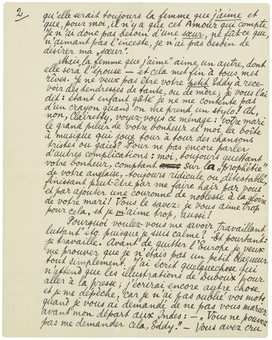 2/
qu'elle serait toujours la femme que j'aime et
que, pour moi, il n'y a que cet Amour qui compte,
je n'ai donc pas besoin d'une sœur, ne fût-ce que
n'aimant pas l'inceste, je n'ai pas besoin de
désirer ma sœur!
Mais la femme que j'aime aime un autre, dont
elle sera l'épouse — et cela met fin à tous mes
rêves. Je ne veux pas être votre petit Eddy à rece-
voir des tendresses de tante, ou de mère; je vous l'ai
dit: étant enfant gâté, je ne me contente pas
d'un crayon quand on me prend un stylo! Ah,
non, Clairetty, voyez-vous ce ménage: votre mari
le grand pilier de votre bonheur et moi la boîte
à musique qui joue tour à tour des chansons
tristes ou gaies? Pour ne pas encore parler
d'autres complications: moi, toujours guettant
votre bonheur, comptant sur la "prophétie"
de votre anglaise, toujours ridicule ou détestable,
finissant peut-être par me faire haïr par vous
et par ajouter une couronne de noblesse à la gloire
de votre mari! Vous le savez: je vous aime trop
pour cela, et je m'aime trop, aussi!
Pourquoi voulez-vous me savoir travaillant
luttant etc. puisque je suis calme? Et pourtant:
je travaille. Avant de quitter l'Europe je veux
me prouver que je n'étais pas un petit blagueur
tout simplement. J'ai écrit quelquechose qui
n'attend que les illustrations de Duboux pour
aller à la presse; j'écrirai encore autre chose
et je me dépêche, car je n'ai pas oublié vos mots
quand je vous ai demandé de ne pas vous marier
avant mon départ aux Indes: — "Vous ne pouvez
pas me demander cela, Eddy." — Vous avez cru